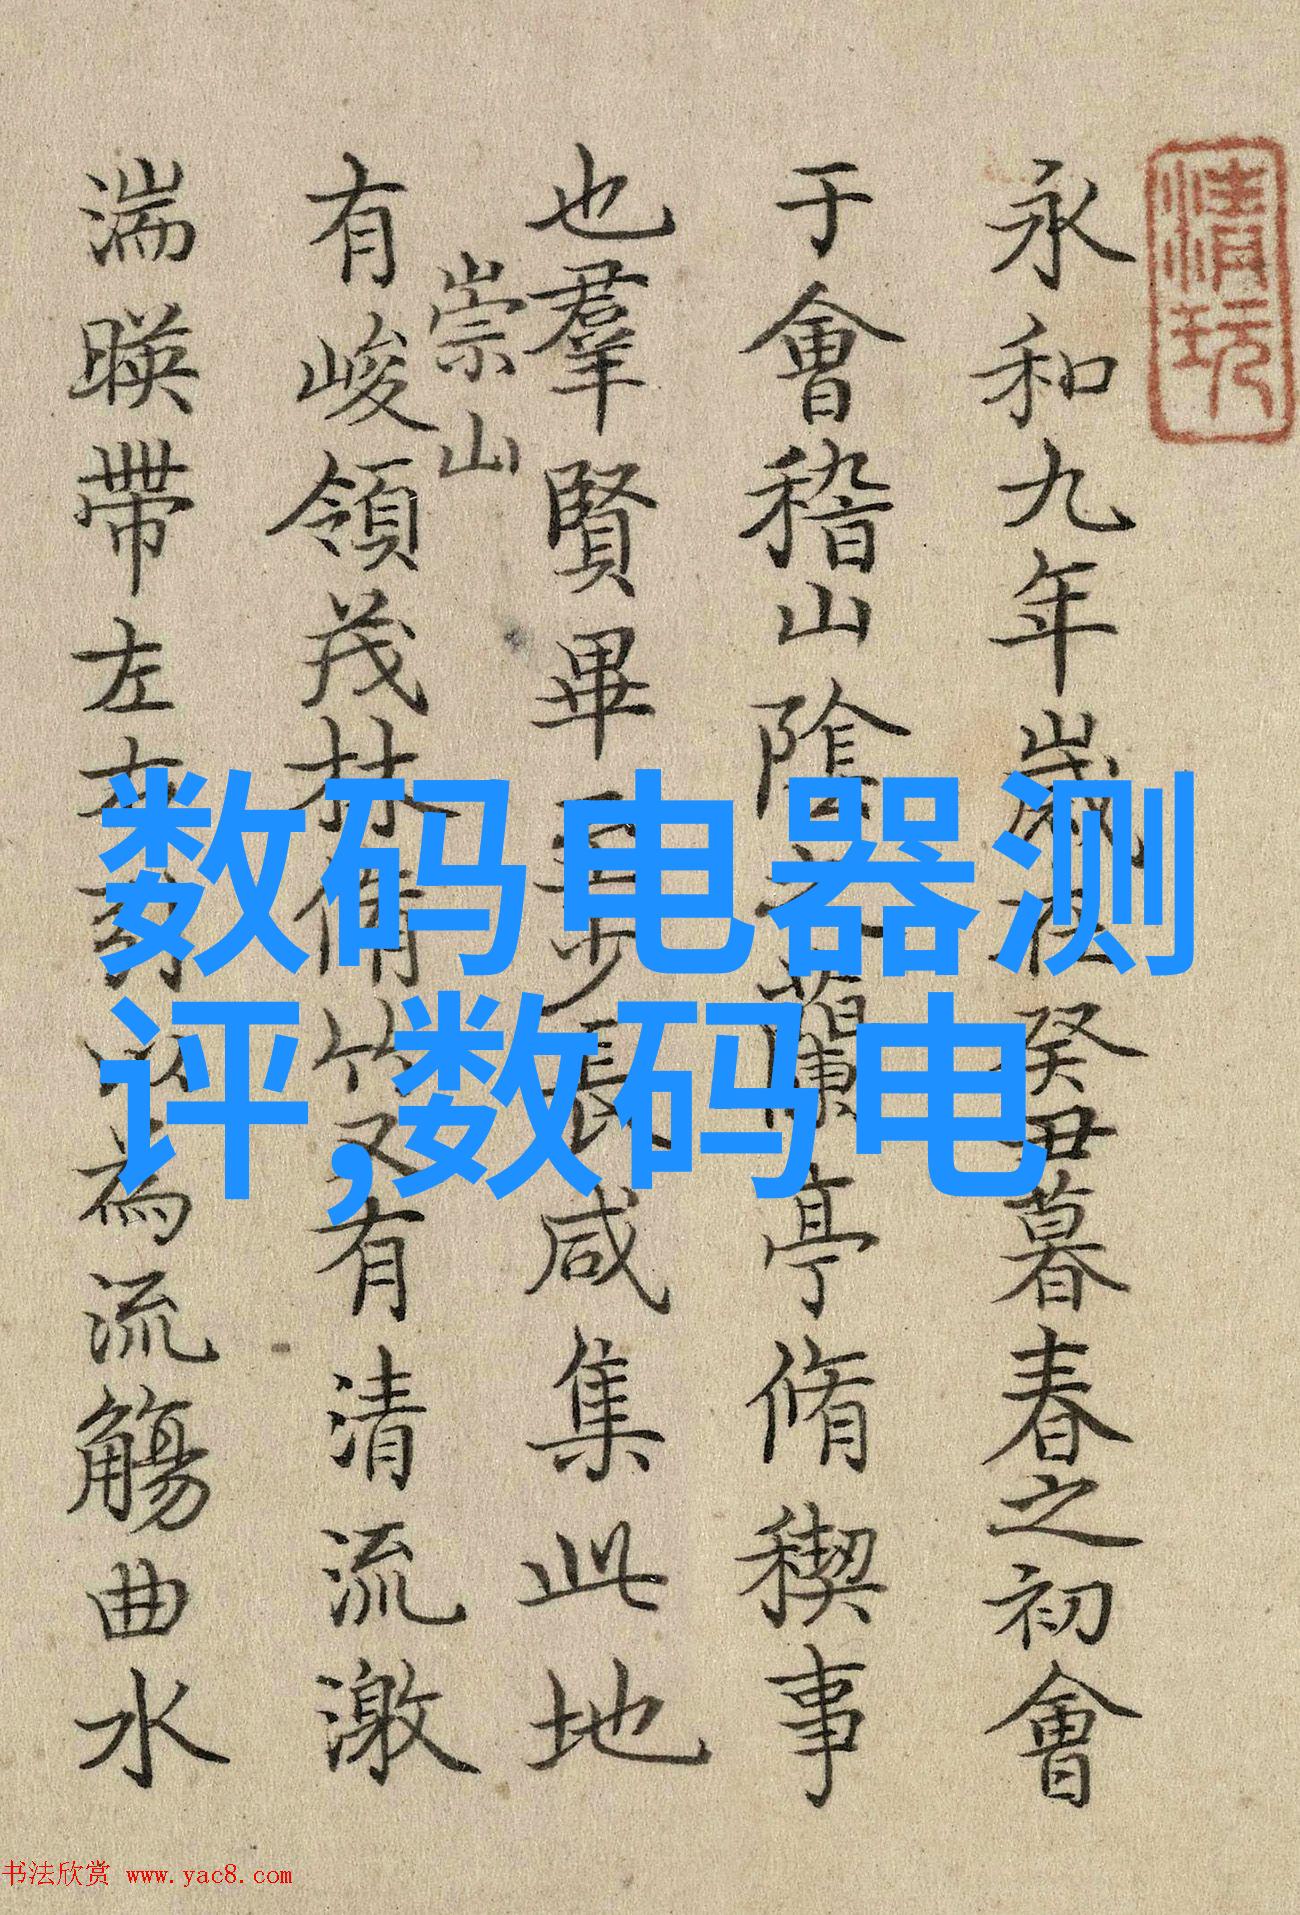 清玩
永和九年歲在癸丑暮春之初會
于會稽山陰之蘭亭脩稧事
也羣賢畢至少長咸集此地
崇山
有峻領茂林脩竹又有清流激
湍暎帶左右引以為流觴曲水
数码电器测
评,数码电
书法欣赏 www.yac8.com